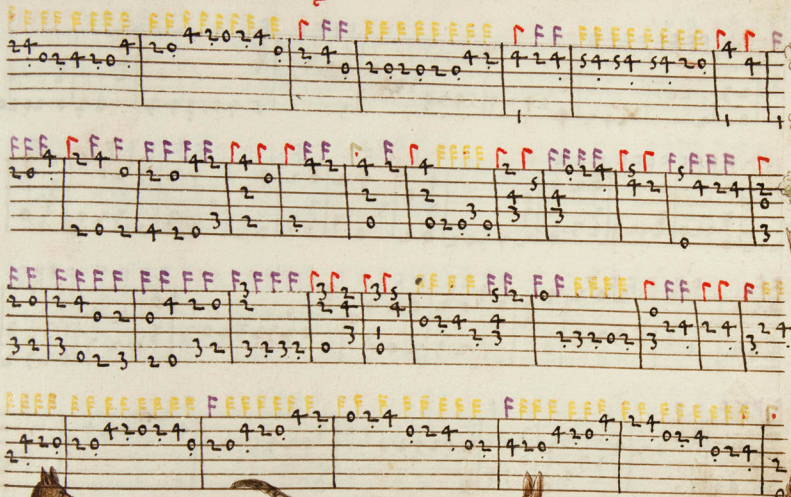 2 4 0 2 4 2 0 4 2 0 4 2 0 2 4 0 2 4 0 2 0 2 0 2 0 4 2 4 1 2 4 5 4 5 4 5 4 2 0 4 1 4 1
2 0 4 2 2 4 0 0 2 2 4 0 2 4 0 2 3 4 2 2 0 2 4 2 4 2 0 2 4 2 0 2 0 3 0 2 4 3 5 4 3 0 2 4 5 4 2 5 0 4 2 4 2 0 3
2 3 0 2 2 3 4 0 0 2 2 3 0 2 4 0 2 3 0 2 3 2 3 2 3 2 3 2 0 2 4 3 3 1 0 5 4 0 2 4 2 5 4 3 2 0 2 3 2 0 2 0 3 2 4 2 4 3 2 4
2 4 2 0 2 0 4 2 0 2 4 0 2 0 4 2 0 4 2 0 2 4 0 2 4 0 2 4 2 0 4 2 0 4 2 4 0 2 4 0 2 4 2